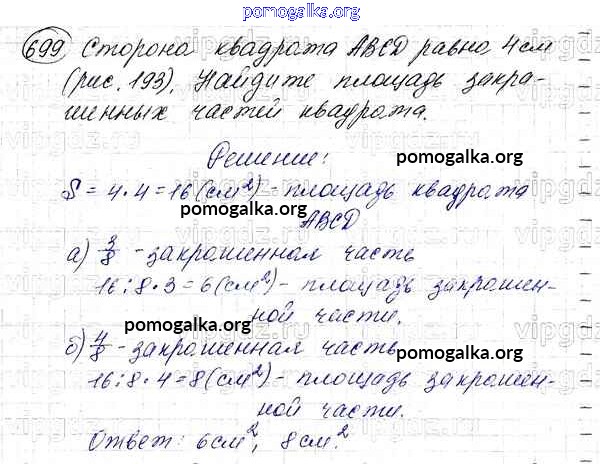 pomogalka.org
699 Сторона квадрата ABCD равна 4см
(рис. 193). Найдите площадь закра-
шенных частей квадрата.
Решение:
pomogalka.org
S = 4·4=16(см²) - площадь квадрата
pomogalka.org
ABCD
а) 3/8 - закрашенная часть
16:8·3=6(см²) - площадь закрашен-
ной части.
pomogalka.org
б) 4/8 - закрашенная часть
pomogalka.org
16:8·4=8(см²) - площадь закрашен-
ной части.
pomogalka.org
Ответ: 6см², 8см².
pomogalka.org